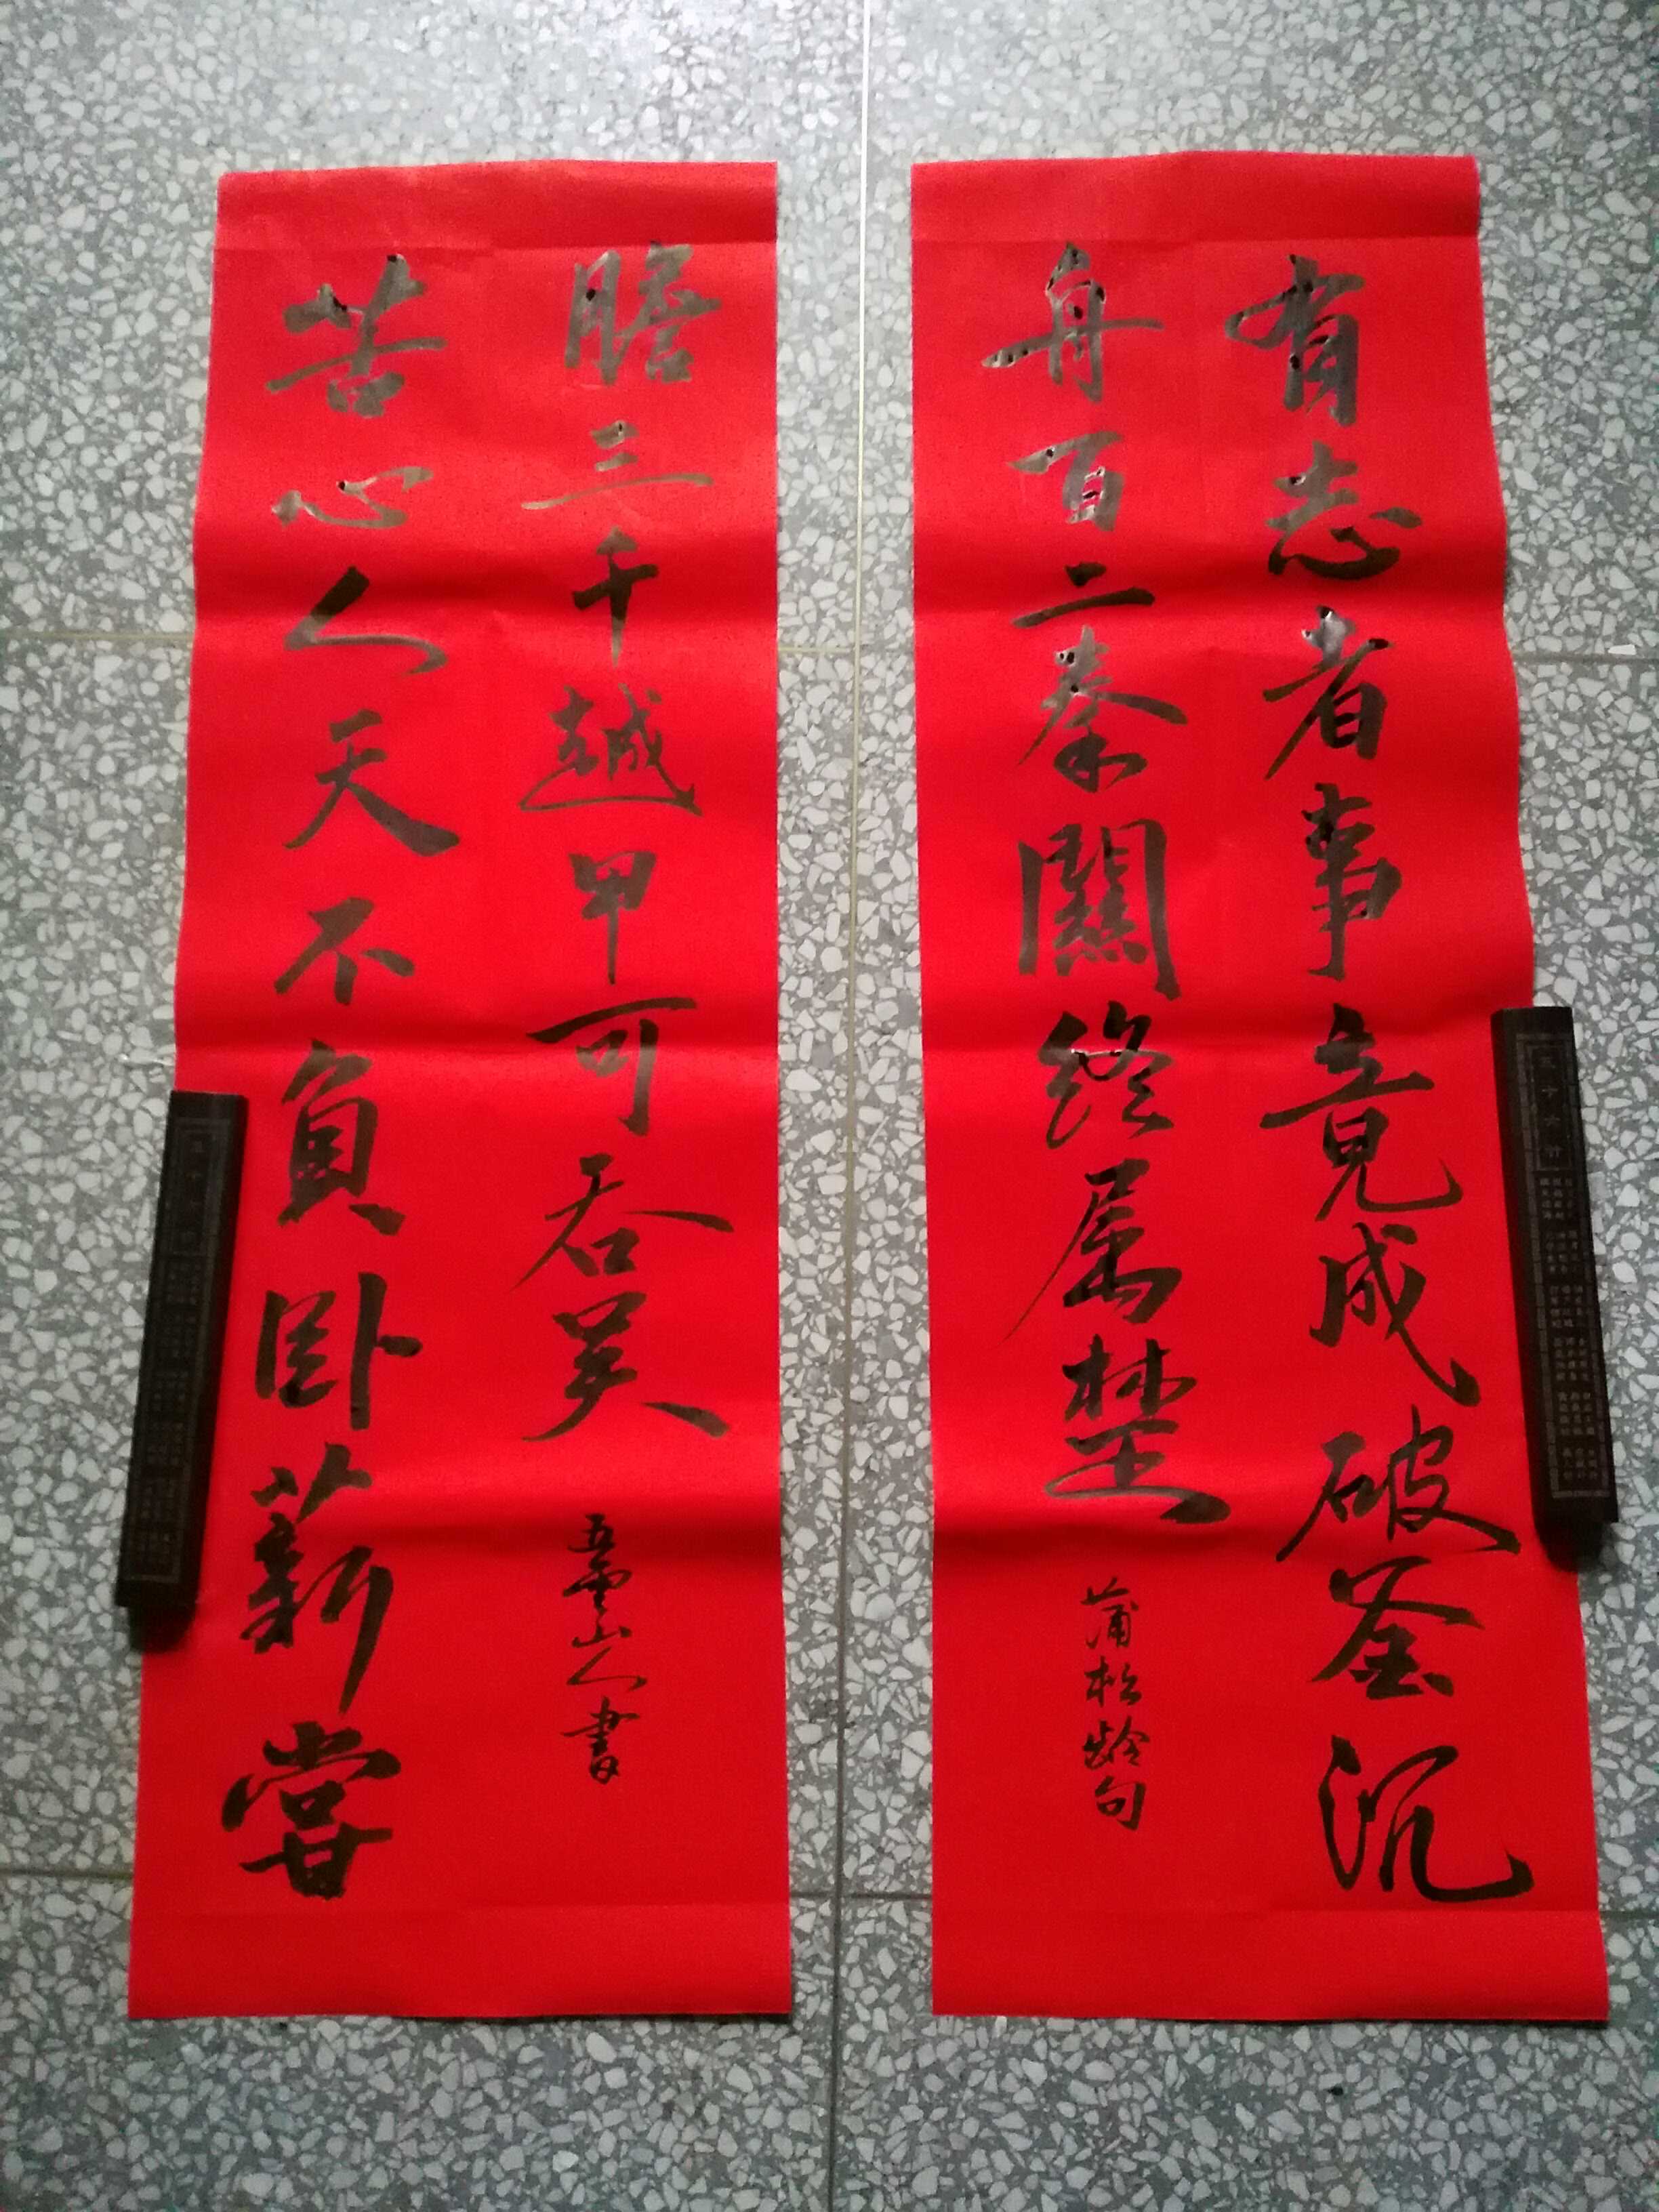 有志者事竟成破釜沉
舟百二秦關終屬楚
蒲松龄句
苦心人天不負卧薪嘗
膽三千越甲可吞吴
五雲山人書
三十六計